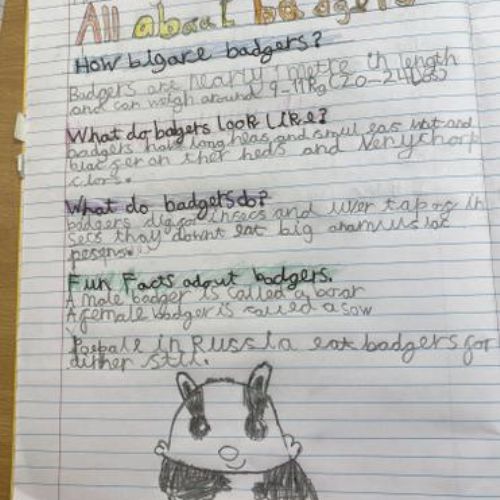 All about badgers
How big are badgers?
Badgers are nearly 1 metre in length
and can weigh around 9-11kg (20-24Lbs)
What do badgers look like?
badgers have long heas and smul eas wht and
blac ger on ther heds and veny
clors.
What do badgers do?
badgers dig insecs and uver
secs they downt eat big
Fun Facts about badgers.
A male badger is called a boar
A female badger is called a sow
in Russia eat badgers for
still.